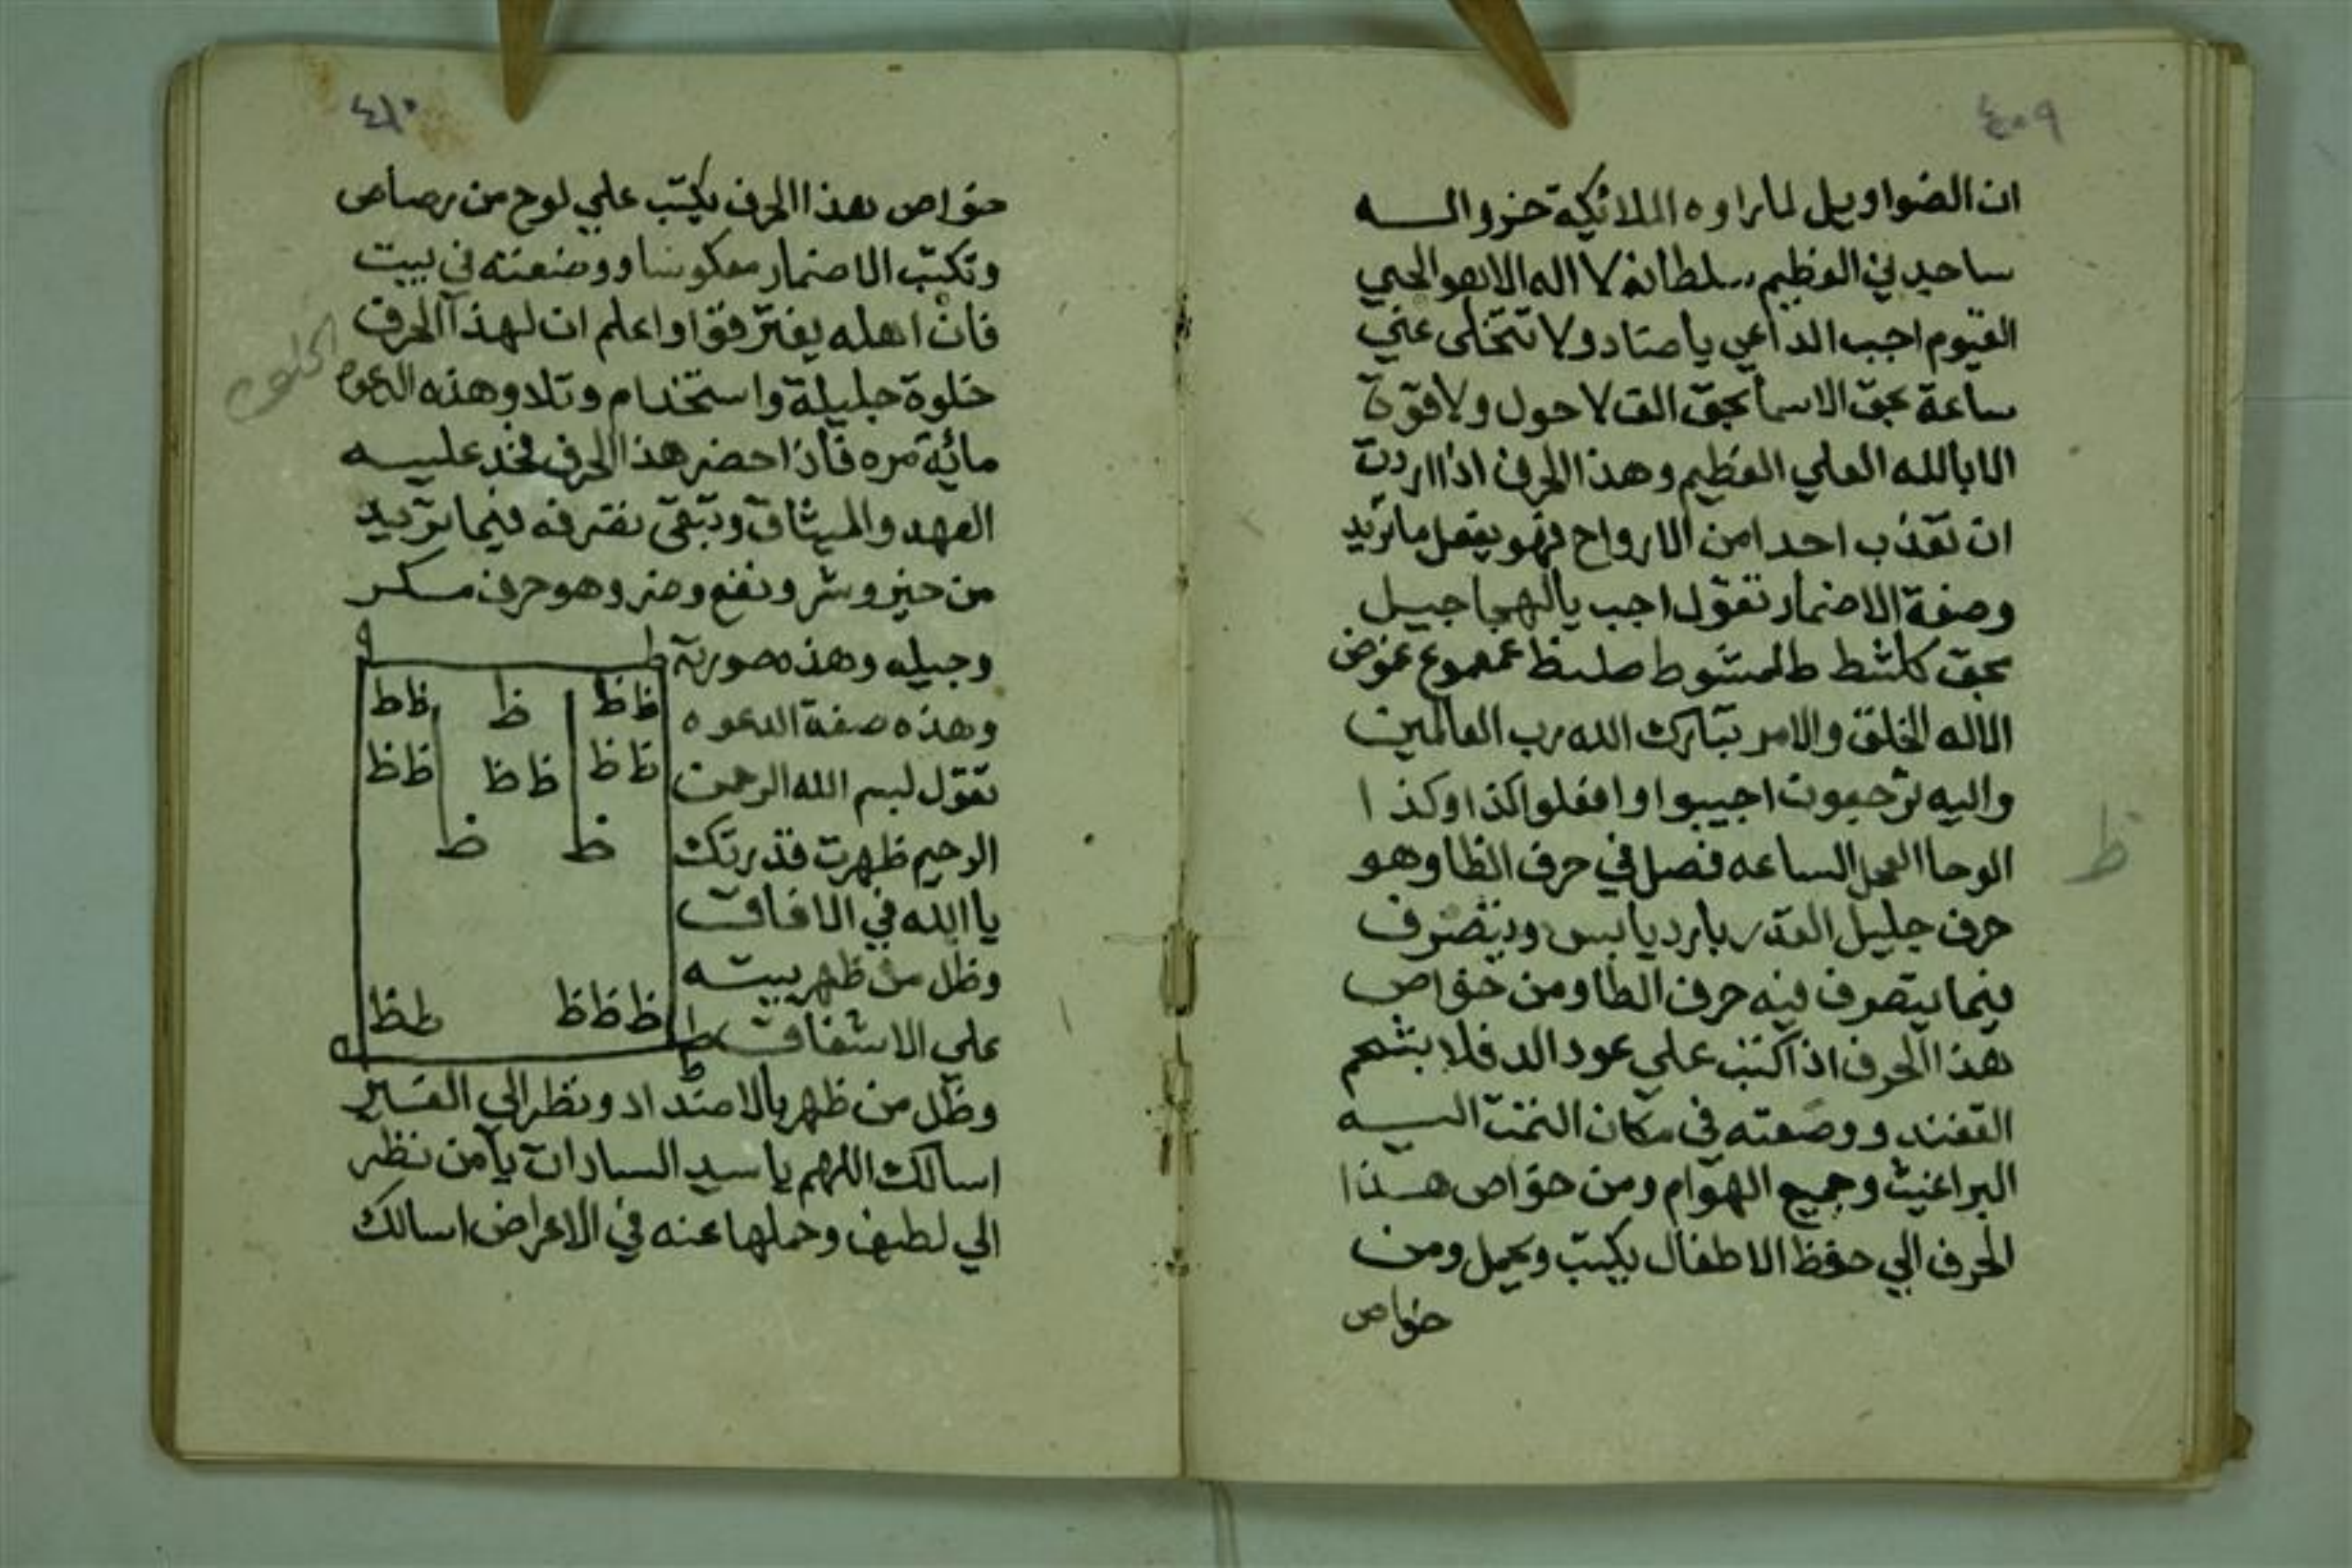 ٤٠٩
ان الضواويل لما راوه الملائكة خروا له
ساجدين العظيم سلطانه لا اله الا هو الحي
القيوم اجب الداعي يا صاد ولا تتخلى عني
ساعة بحق الاسما بحق الف لا حول ولا قوة
الا بالله العلي العظيم وهذا الحرف اذا اردت
ان تعذب احدا من الارواح فهو يفعل ما تريد
وصفة الاضمار تقول اجب يا لهجا جييل
بحق كلشط طلمشوط
الا له الخلق والامر تبارك الله رب العالمين
واليه ترجعون اجيبوا وافعلوا كذا وكذا
الوحا العجل الساعه فصل في حرف الظا وهو
ظ
حرف جليل القدر بارد يابس ويتصرف
فيما يتصرف فيه حرف الطا ومن خواص
هذا الحرف اذا كتب علي عود الدفلا بشحم
القنفد ووضعته في مكان التمت اليه
البراغيث وجميع الهوام ومن خواص هذا
الحرف الي حفظ الاطفال يكتب ويحمل ومن
خواص
٤١٠
خواص هذا الحرف يكتب علي لوح من رصاص
وتكتب الاضمار معكوسا ووضعته في بيت
فان اهله يفترقوا واعلم ان لهذا الحرف
الخلوه
خلوة جليلة واستخدام وتلاوة هذه الدعوه
مائة مره فاذا حضر هذا الحرف فخد عليه
العهد والميثاق وتبقى تصرفه فيما تريد
من خير وشر ونفع وضر وهو حرف مسكر
وجيله وهذه صورته
وهذه صفة الدعوه
تقول بسم الله الرحمن
الرحيم ظهرت قدرتك
يا الله في الافاق
وظل من ظهر بيته
علي الاشفاق
ط ط
ظ ظ ظ ظ ط
ظ ظ ظ ظ ظ ظ
ظ ظ
ظ ظ ظ ط ظ
ط
وظل من ظهر بالامتداد ونظر الي
اسالك اللهم يا سيد السادات يا من نظر
الي لطيف وحملها عنه في الاعراض اسالك